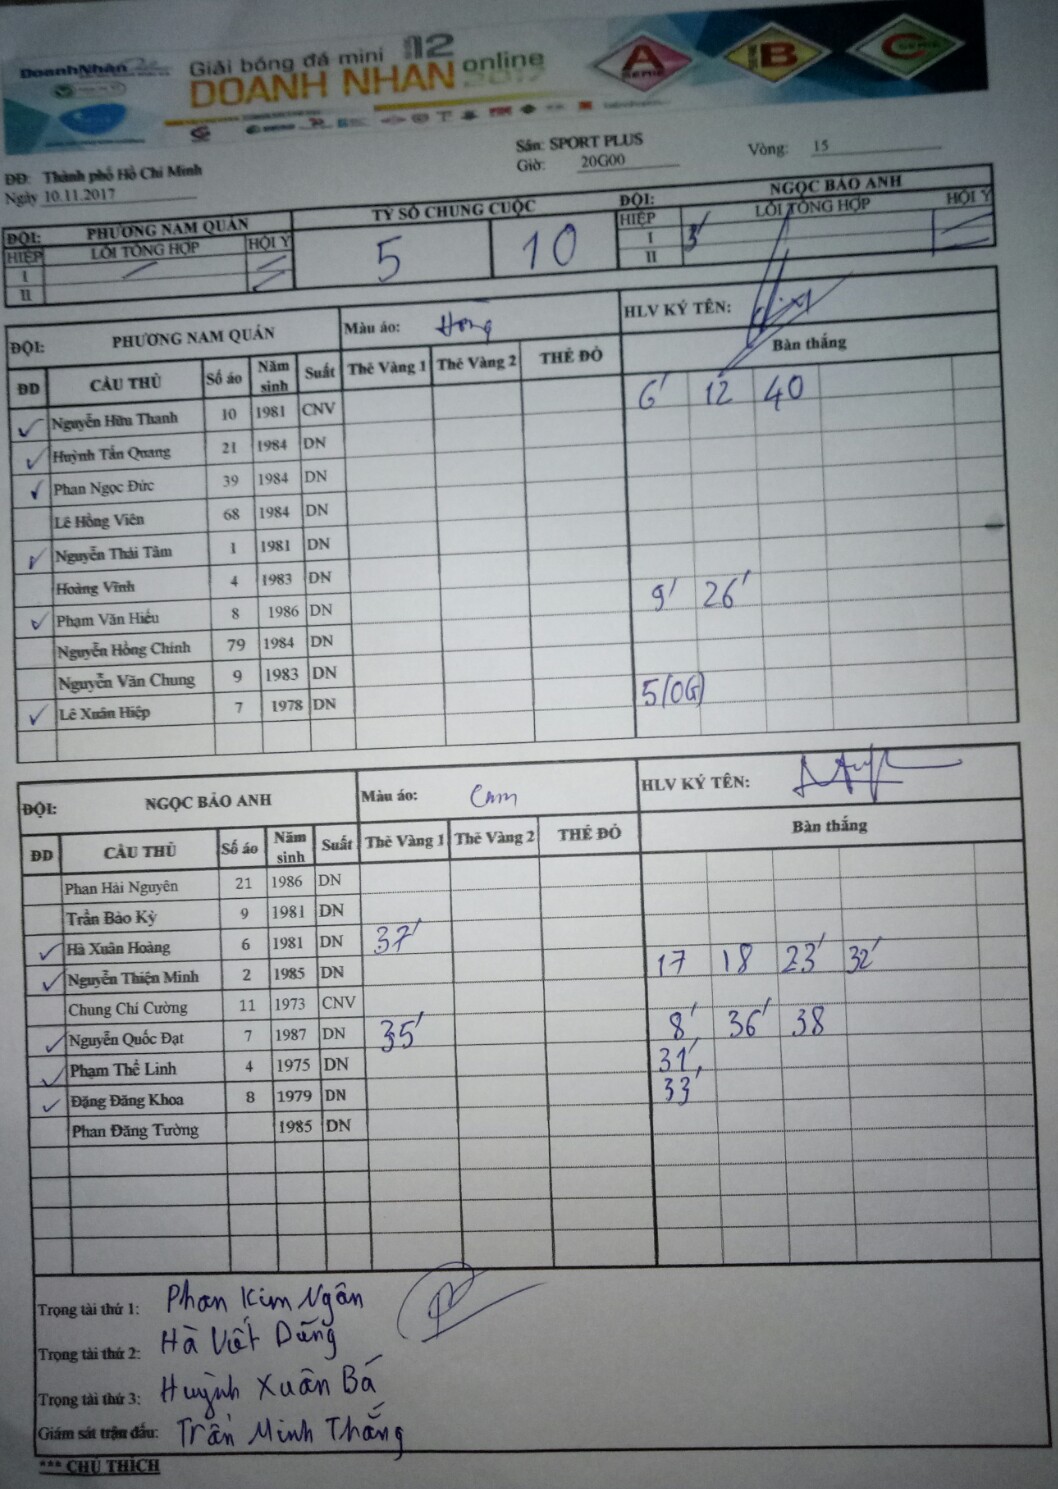 DoanhNhân
Giải bóng đá mini 12
DOANH NHÂN online
2017
A
SERIE
B
SERIE
C
SERIE
ĐĐ: Thành phố Hồ Chí Minh
Ngày 10.11.2017
Sân: SPORT PLUS
Giờ: 20G00
Vòng: 15
ĐỘI: PHƯƠNG NAM QUÁN TỶ SỐ CHUNG CUỘC ĐỘI: NGỌC BẢO ANH
HIỆP LỖI TỔNG HỢP HỘI Ý 5 10 HIỆP LỖI TỔNG HỢP HỘI Ý
I I 3'
II II
ĐỘI: PHƯƠNG NAM QUÁN Màu áo: Hồng HLV KÝ TÊN:
ĐD CẦU THỦ Số áo Năm sinh Suất Thẻ Vàng 1 Thẻ Vàng 2 THẺ ĐỎ Bàn thắng
✓ Nguyễn Hữu Thanh 10 1981 CNV 6' 12 40
✓ Huỳnh Tấn Quang 21 1984 DN
✓ Phan Ngọc Đức 39 1984 DN
Lê Hồng Viên 68 1984 DN
✓ Nguyễn Thái Tâm 1 1981 DN
Hoàng Vĩnh 4 1983 DN
✓ Phạm Văn Hiếu 8 1986 DN 9' 26'
Nguyễn Hồng Chính 79 1984 DN
Nguyễn Văn Chung 9 1983 DN
✓ Lê Xuân Hiệp 7 1978 DN 5/(OG)
ĐỘI: NGỌC BẢO ANH Màu áo: Cam HLV KÝ TÊN:
ĐD CẦU THỦ Số áo Năm sinh Suất Thẻ Vàng 1 Thẻ Vàng 2 THẺ ĐỎ Bàn thắng
Phan Hải Nguyên 21 1986 DN
Trần Bảo Kỳ 9 1981 DN
✓ Hà Xuân Hoàng 6 1981 DN 37'
✓ Nguyễn Thiện Minh 2 1985 DN 17 18 23' 32'
Chung Chí Cường 11 1973 CNV
✓ Nguyễn Quốc Đạt 7 1987 DN 35' 8' 36' 38
✓ Phạm Thế Linh 4 1975 DN 31'
✓ Đặng Đăng Khoa 8 1979 DN 33'
Phan Đăng Tường 1985 DN
Trọng tài thứ 1: Phan Kim Ngân
Trọng tài thứ 2: Hà Viết Dũng
Trọng tài thứ 3: Huỳnh Xuân Bá
Giám sát trận đấu: Trần Minh Thắng
*** CHÚ THÍCH